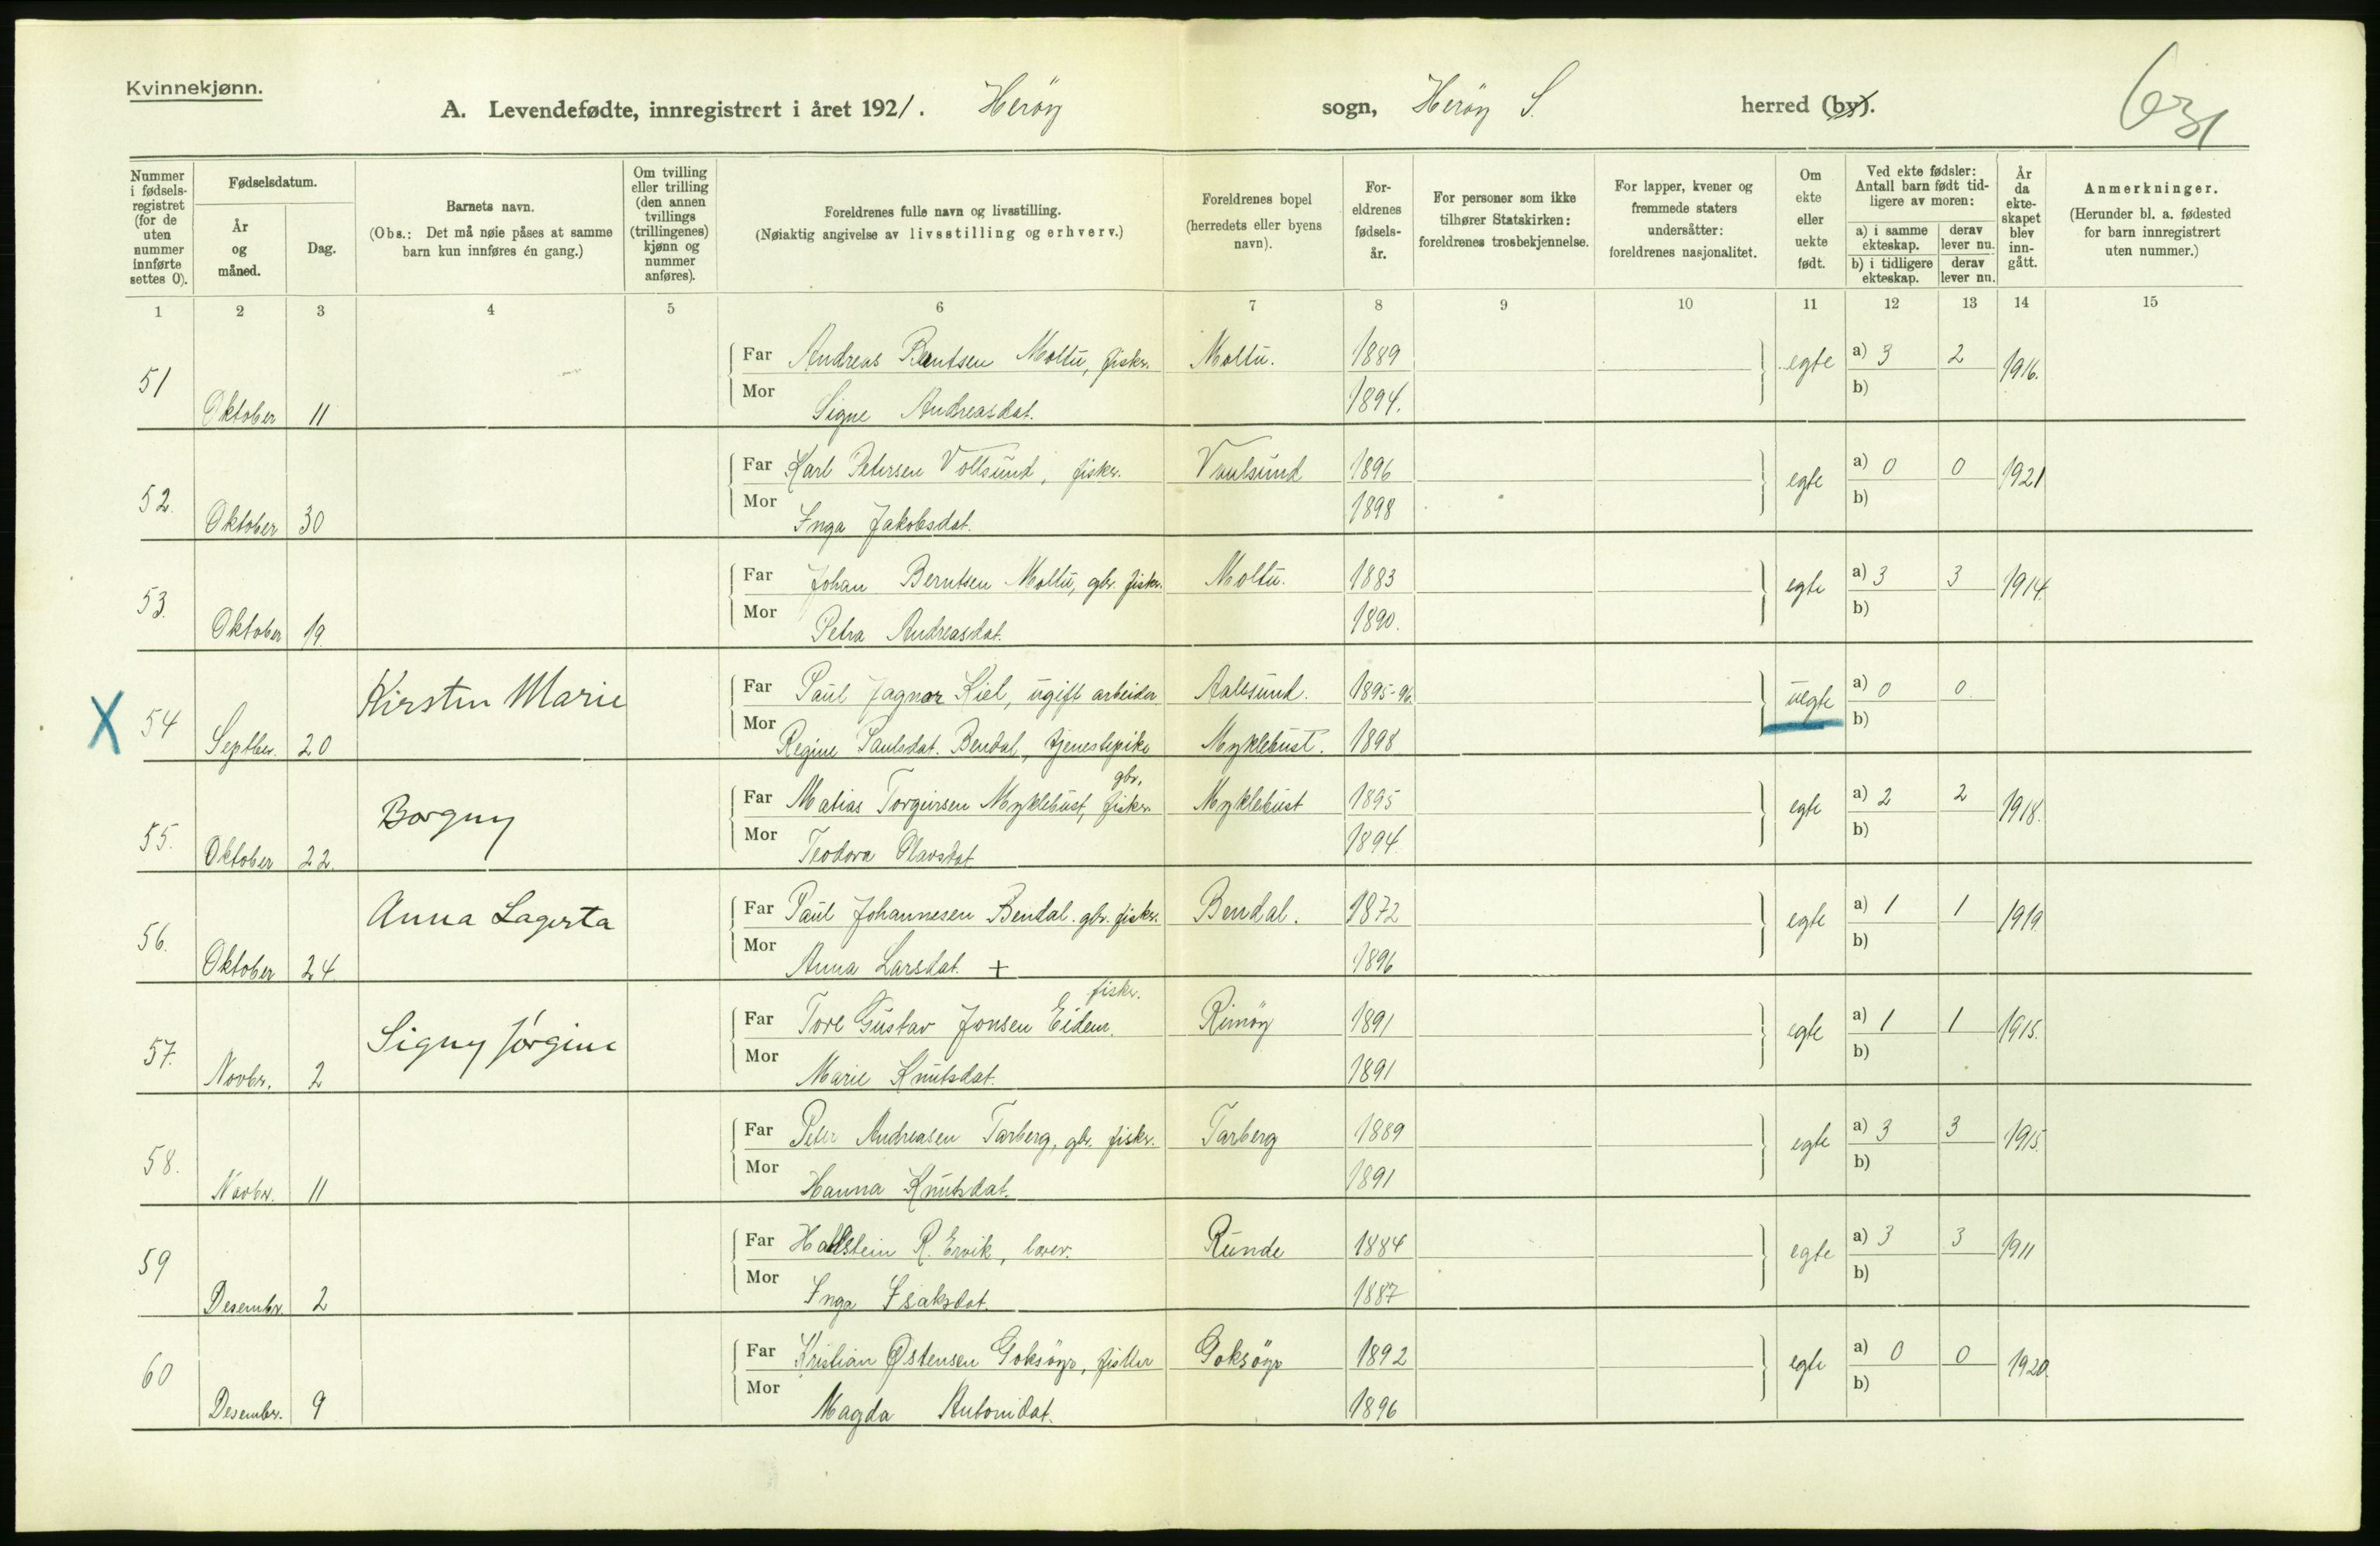 Kvinnekjønn.
A. Levendefødte, innregistrert i året 1921. Herøy sogn, Herøy S. herred (by).
Nummer i fødselsregistret (for de uten nummer innførte settes 0).
Fødselsdatum.
År og måned.
Dag.
Barnets navn.
(Obs.: Det må nøie påses at samme barn kun innføres én gang.)
Om tvilling eller trilling (den annen tvillings (trillingenes) kjønn og nummer anføres).
Foreldrenes fulle navn og livsstilling.
(Nøiaktig angivelse av livsstilling og erhverv.)
Foreldrenes bopel (herredets eller byens navn).
Foreldrenes fødselsår.
For personer som ikke tilhører Statskirken: foreldrenes trosbekjennelse.
For lapper, kvener og fremmede staters undersåtter: foreldrenes nasjonalitet.
Om ekte eller uekte født.
Ved ekte fødsler: Antall barn født tidligere av moren:
a) i samme ekteskap. derav lever nu.
b) i tidligere ekteskap. derav lever nu.
År da ekteskapet blev inngått.
Anmerkninger.
(Herunder bl. a. fødested for barn innregistrert uten nummer.)
1 2 3 4 5 6 7 8 9 10 11 12 13 14 15
Far Andreas Berntsen Moltu, fisker. Moltu. 1889 egte a) 3 2 1916.
51 Oktober 11 Mor Signe Andreasdat. 1894. b)
Far Karl Petersen Voltsund, fisker. 1896 egte a) 0 0 1921
52. Oktober 30 Mor Inga Jakobsdat. 1898 b)
Far Johan Berntsen Moltu, gbr. fisker. Moltu. 1883 egte a) 3 3 1914.
53. Oktober 19. Mor Petra Andreasdat. 1890. b)
Kirsten Marie Far Paul Kiel, ugift arbeider Aalesund. 1895-96. uegte a) 0 0
X 54 Septber. 20 Mor Regine Paulsdat. Bendal, tjenestepike Myklebust. 1898 b)
gbr.
Borgny Far Matias Torgeirsen Myklebust, fisker. Myklebust 1895 egte a) 2 2 1918.
55. Oktober 22. Mor Teodora Olavsdat 1894. b)
Anna Lagerta Far Paul Johannesen Bendal. gbr. fisker. Bendal. 1872 egte a) 1 1 1919
56. Oktober 24. Mor Anna Larsdat. + 1896 b)
fisker.
Signy Jørgine Far Tore Gustav Jonsen Eidem. Rimöy 1891 egte a) 1 1 1915.
57. Novbr. 2 Mor Marie Knutsdat. 1891 b)
Far Peter Andreasen Tarberg, gbr. fisker. Tarberg 1889 egte a) 3 3 1915.
58. Novbr. 11 Mor Hanna Knutsdat. 1891 b)
Far Hallstein R. Ervik, lærer. Runde 1884 egte a) 3 3 1911
59 Desembr. 2 Mor Inga Isaksdat. 1887 b)
Far Kristian Østensen Goksöyr, fisker Goksöyr 1892 egte a) 0 0 1920.
60 Desembr. 9 Mor Magda Antonidat. 1896 b)